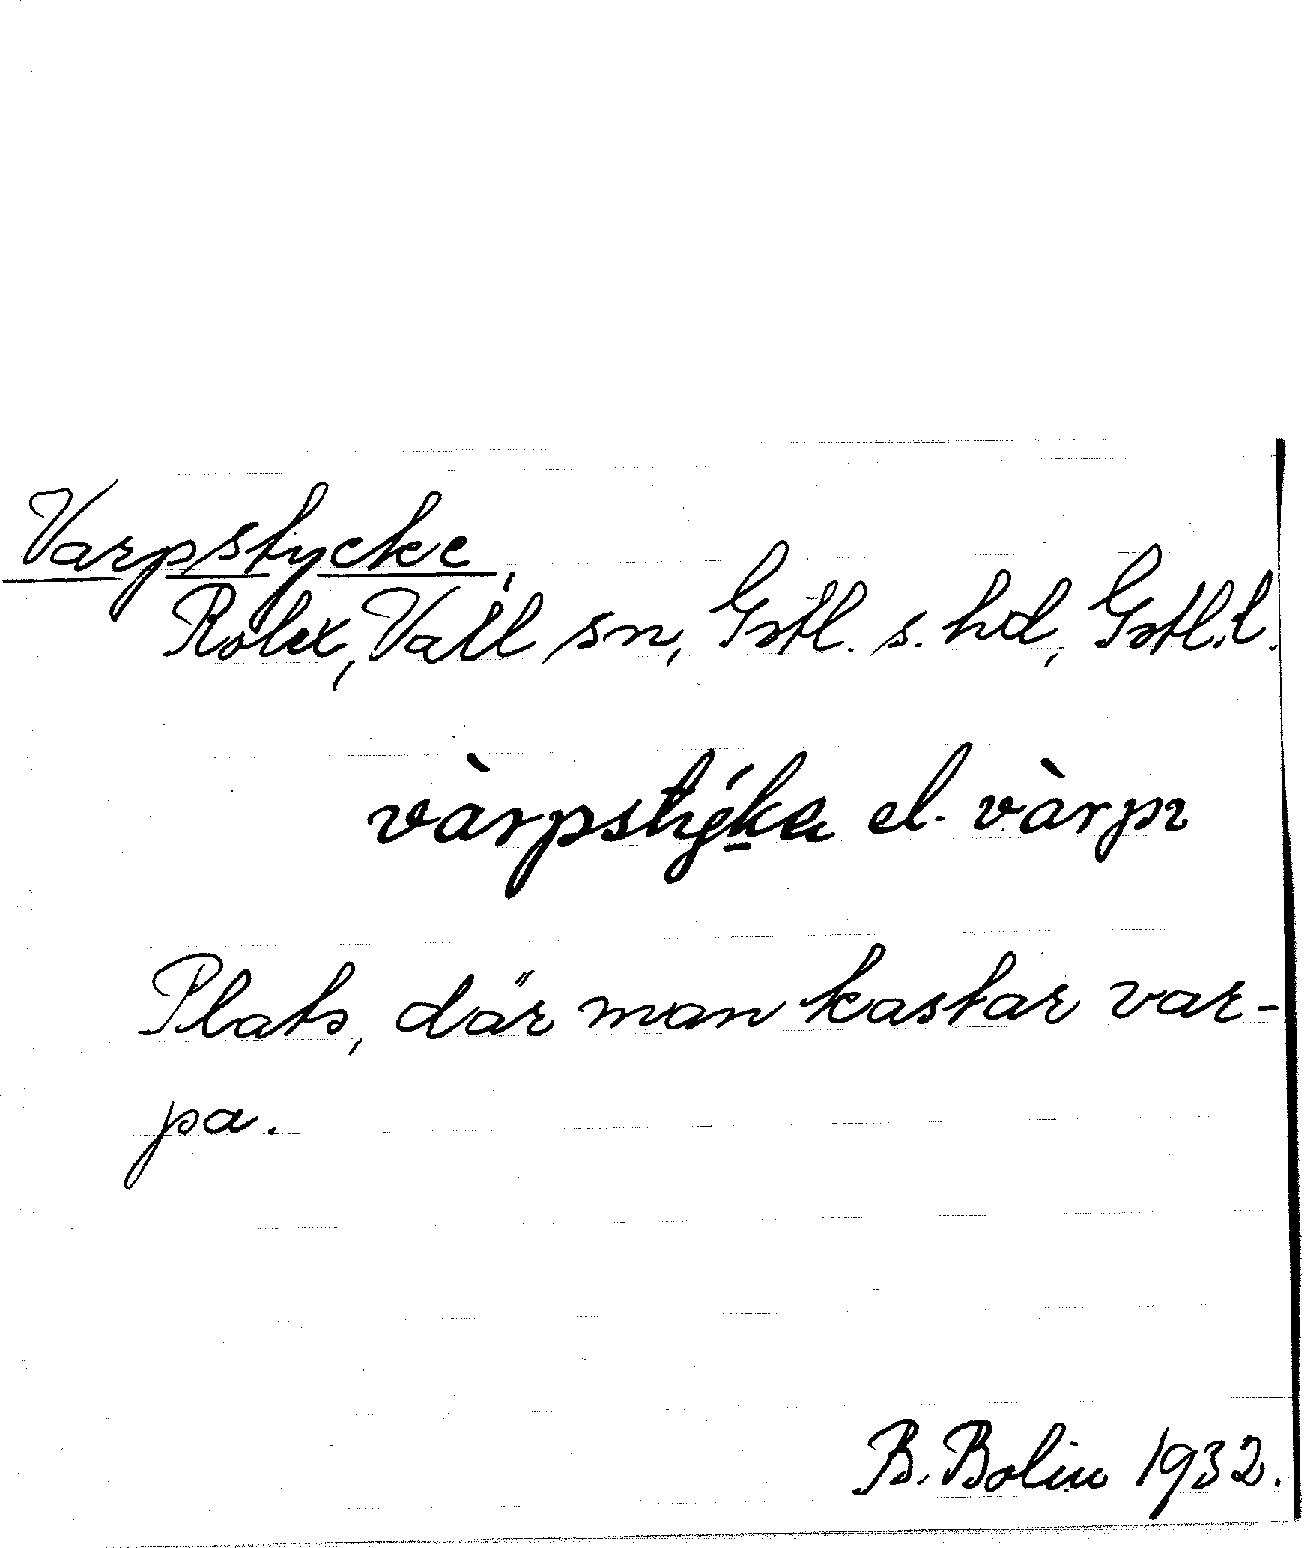 Varpstycke,
Rolex, Vall sn, Gotl. s. hd, Gotl.l.
vàrpstýka el. vàrpı
Plats, där man kastar var-
pa.
B. Bolin 1932.